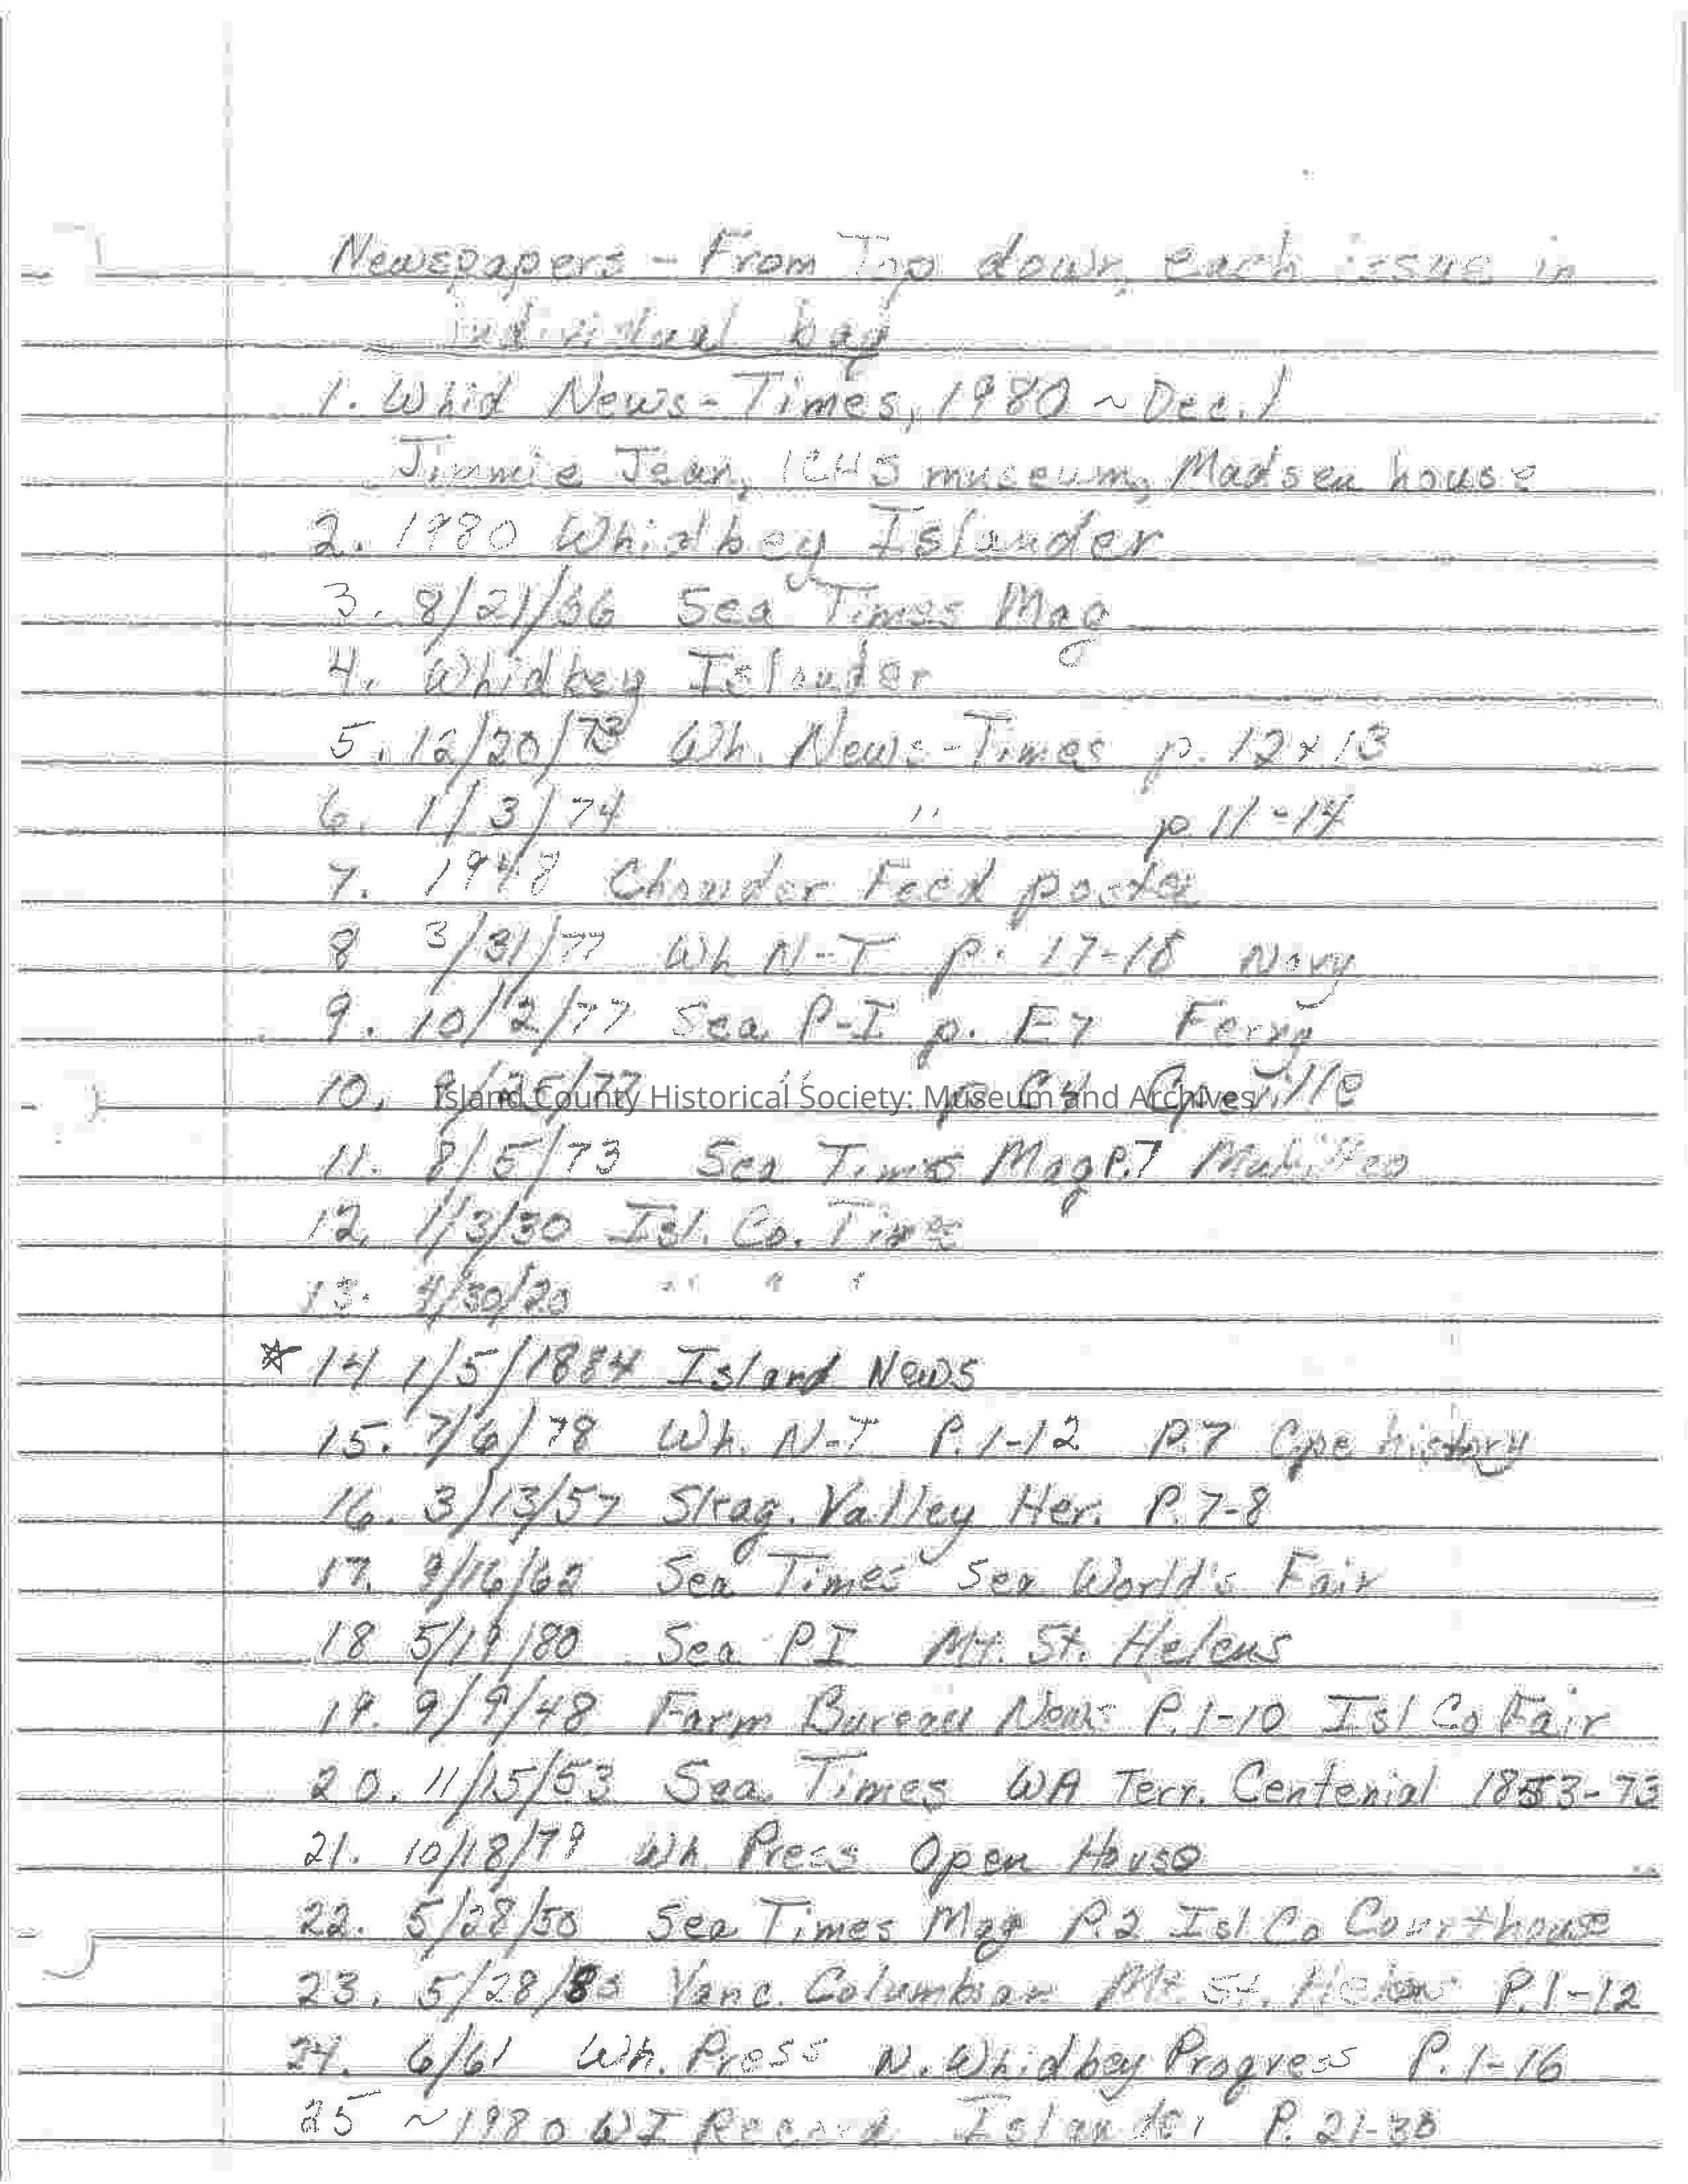 Newspapers - From Top down, each issue in
individual bag
1. Whid News-Times, 1980 ~ Dec. 1
Jimmie Jean, ICHS museum, Madsen house
2. 1980 Whidbey Islander
3. 8/21/66 Sea Times Mag
4. Whidbey Islander
5. 12/20/73 Wh. News-Times p. 12 & 13
6. 1/3/74 " p. 11-14
7. 1948 Chowder Feed poster
8 3/31/77 Wh N-T p. 17-18 Navy
9. 10/2/77 Sea. P-I p. E7 Ferry
10. /25/77 " p. C4 Cpeville
Island County Historical Society: Museum and Archives
11. 8/5/73 Sea Times Mag P.7 Mukilteo
12. 1/3/30 Isl. Co. Time
13. 4/30/20 " " "
☆ 14 1/5/1884 Island News
15. 7/6/78 Wh. N-T P. 1-12 P.7 Cpe history
16. 3/13/57 Skag. Valley Her. P. 7-8
17. 9/16/62 Sea Times Sea World's Fair
18 5/19/80 Sea PI Mt. St. Helens
19. 9/9/48 Farm Bureau News P. 1-10 Isl Co Fair
20. 11/15/53 Sea. Times WA Terr. Centenial 1853-73
21. 10/18/79 Wh. Press Open House
22. 5/28/50 Sea Times Mag P.2 Isl Co Courthouse
23. 5/28/80 Vanc. Columbian Mt. St. Helens P. 1-12
24. 6/61 Wh. Press N. Whidbey Progress P. 1-16
25 ~1980 WI Record Islander P. 21-